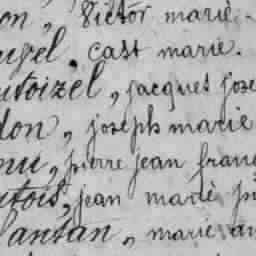 on, Victor marie
ugel, Cast marie.
utoizel, jacques jose
don, joseph marie
nu, pierre jean franc
utois, jean marie pi
Lansan, marie an